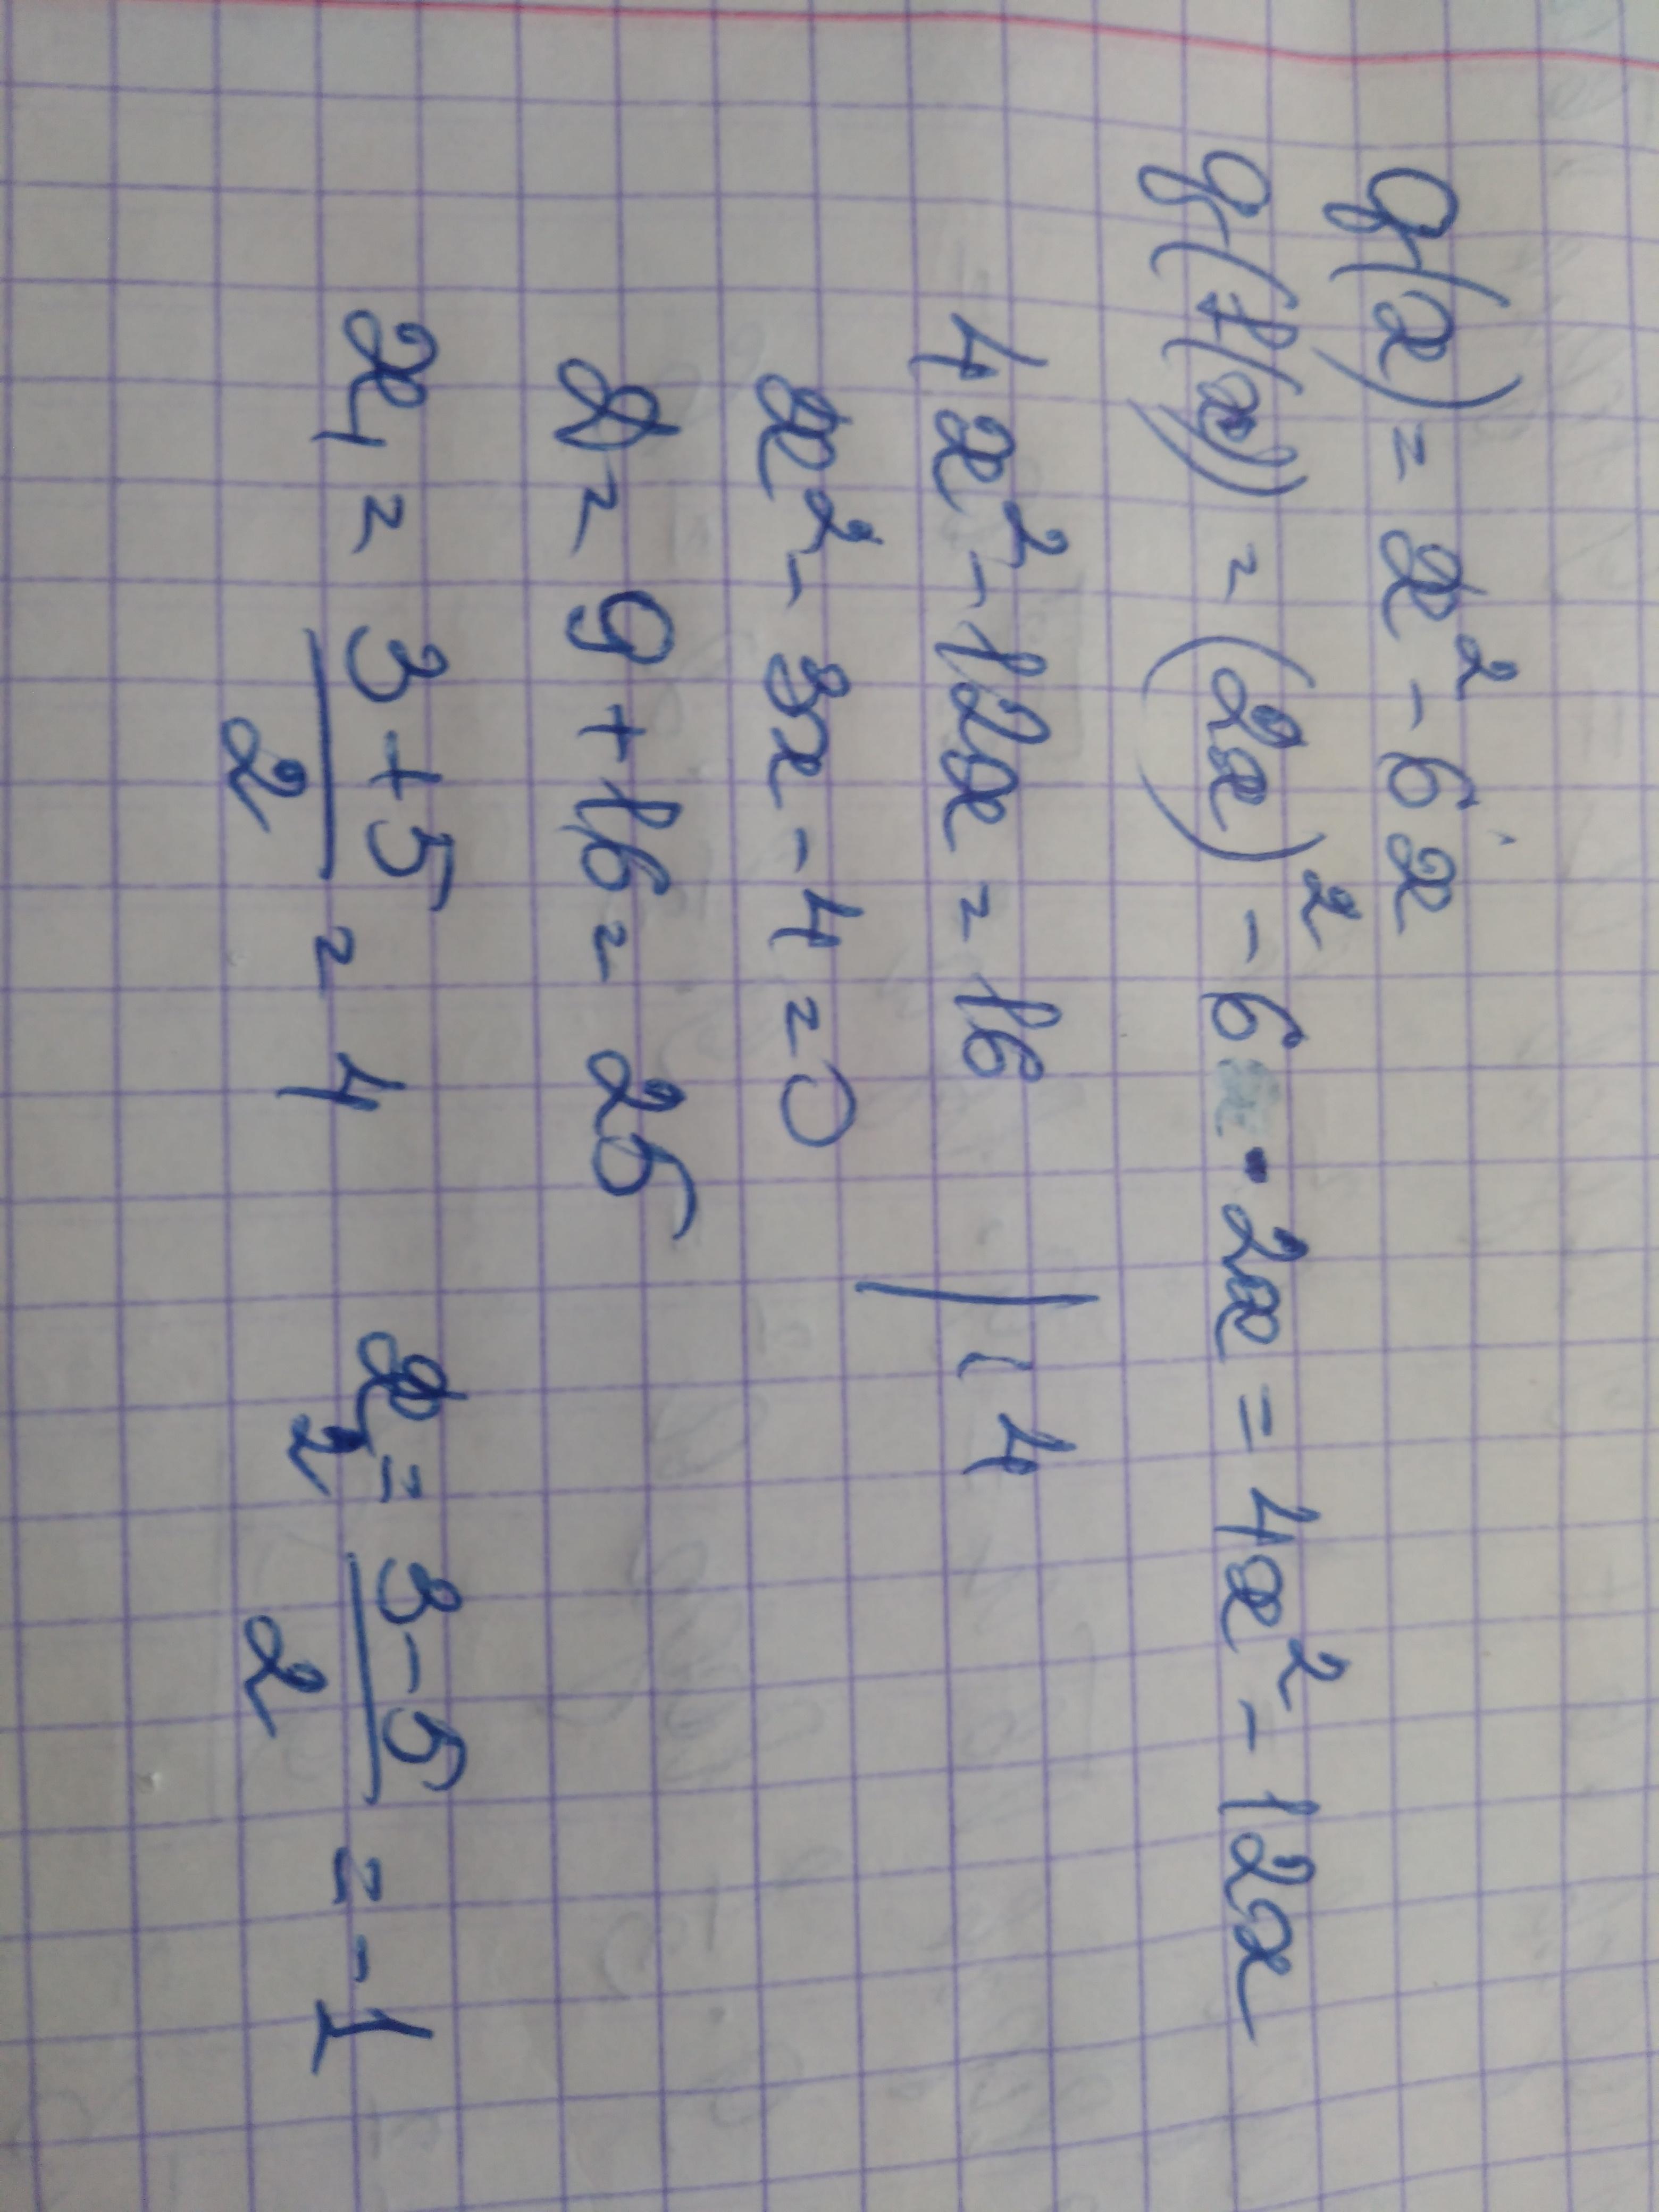 g(x) = x² - 6x
g(f(x)) = (2x)² - 6 · 2x = 4x² - 12x
4x² - 12x = 16 | : 4
x² - 3x - 4 = 0
D = 9 + 16 = 25
x₁ = (3 + 5)/2 = 4   x₂ = (3 - 5)/2 = -1